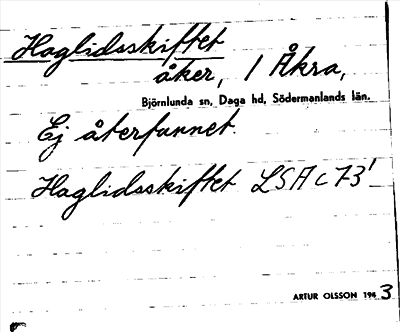 Haglidsskiftet
åker, 1 Åkra,
Björnlunda sn, Daga hd, Södermanlands län.
Ej återfunnet.
Haglidsskiftet LSA C 73'
ARTUR OLSSON 1943